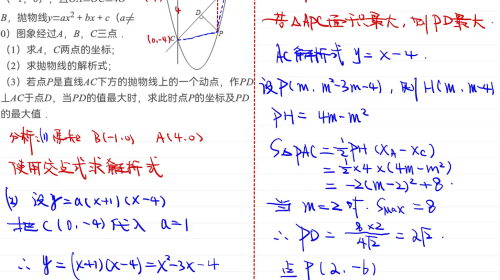 B，抛物线y=ax²+bx+c（a≠
0）图象经过A，B，C三点．
（1）求A，C两点的坐标；
（2）求抛物线的解析式；
（3）若点P是直线AC下方的抛物线上的一个动点，作PD
⊥AC于点D，当PD的值最大时，求此时点P的坐标及PD
的最大值．
4
D
C
(0,-4)
分析:(1)
B(-1,0) A(4,0)
使用交点式求解析式
(2) 设y=a(x+1)(x-4)
把C(0,-4)代入 a=1
∴ y=(x+1)(x-4)=x²-3x-4
若△APC面积最大，则PD最大.
AC解析式 y=x-4.
设P(m, m²-3m-4)，则H(m, m-4)
PH= 4m-m²
S△PAC=½PH(XA-XC)
=½×4×(4m-m²)
=-2(m-2)²+8.
当 m=2时. Smax=8
∴ PD= 8×2/4√2 = 2√2.
点P(2,-6)